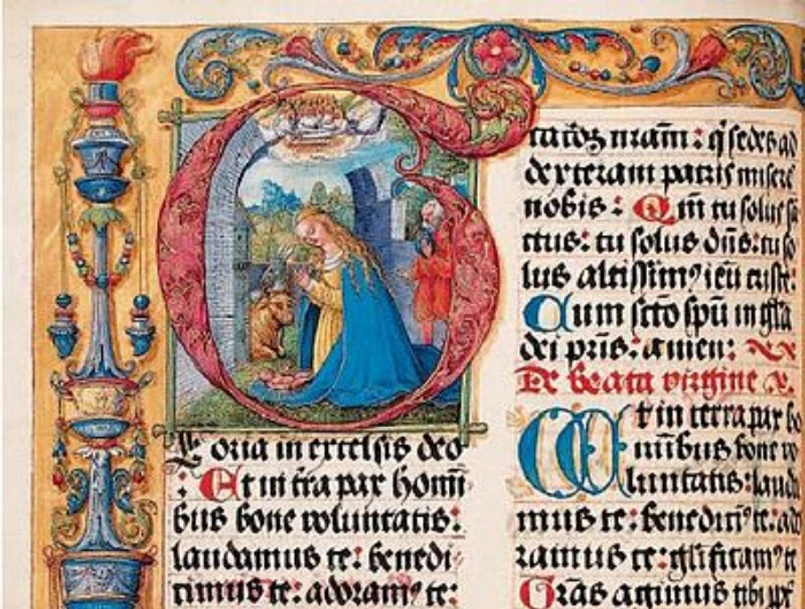 Gloria in excelsis deo
: Et in t̄ra pax homī
bus bone voluntatis:
laudamus te: benedi
cimus te: adoramꝰ te:
nr̄am: q̄ sedes ad
dexteram patris misere
nobis: Qm̄ tu solus sā
ctus: tu solus dn̄s: tu so
lus altissimꝰ ieū criste:
Cum sc̄to sp̄u in gl̄a
dei pr̄is: amen:
De beata virgine
Et in terra pax ho
nibus bone vo
luntatis: lauda
mus te: benediciꝰ te: ad
ramus te: gl̄ificamꝰ te
Gr̄as agimus tibi